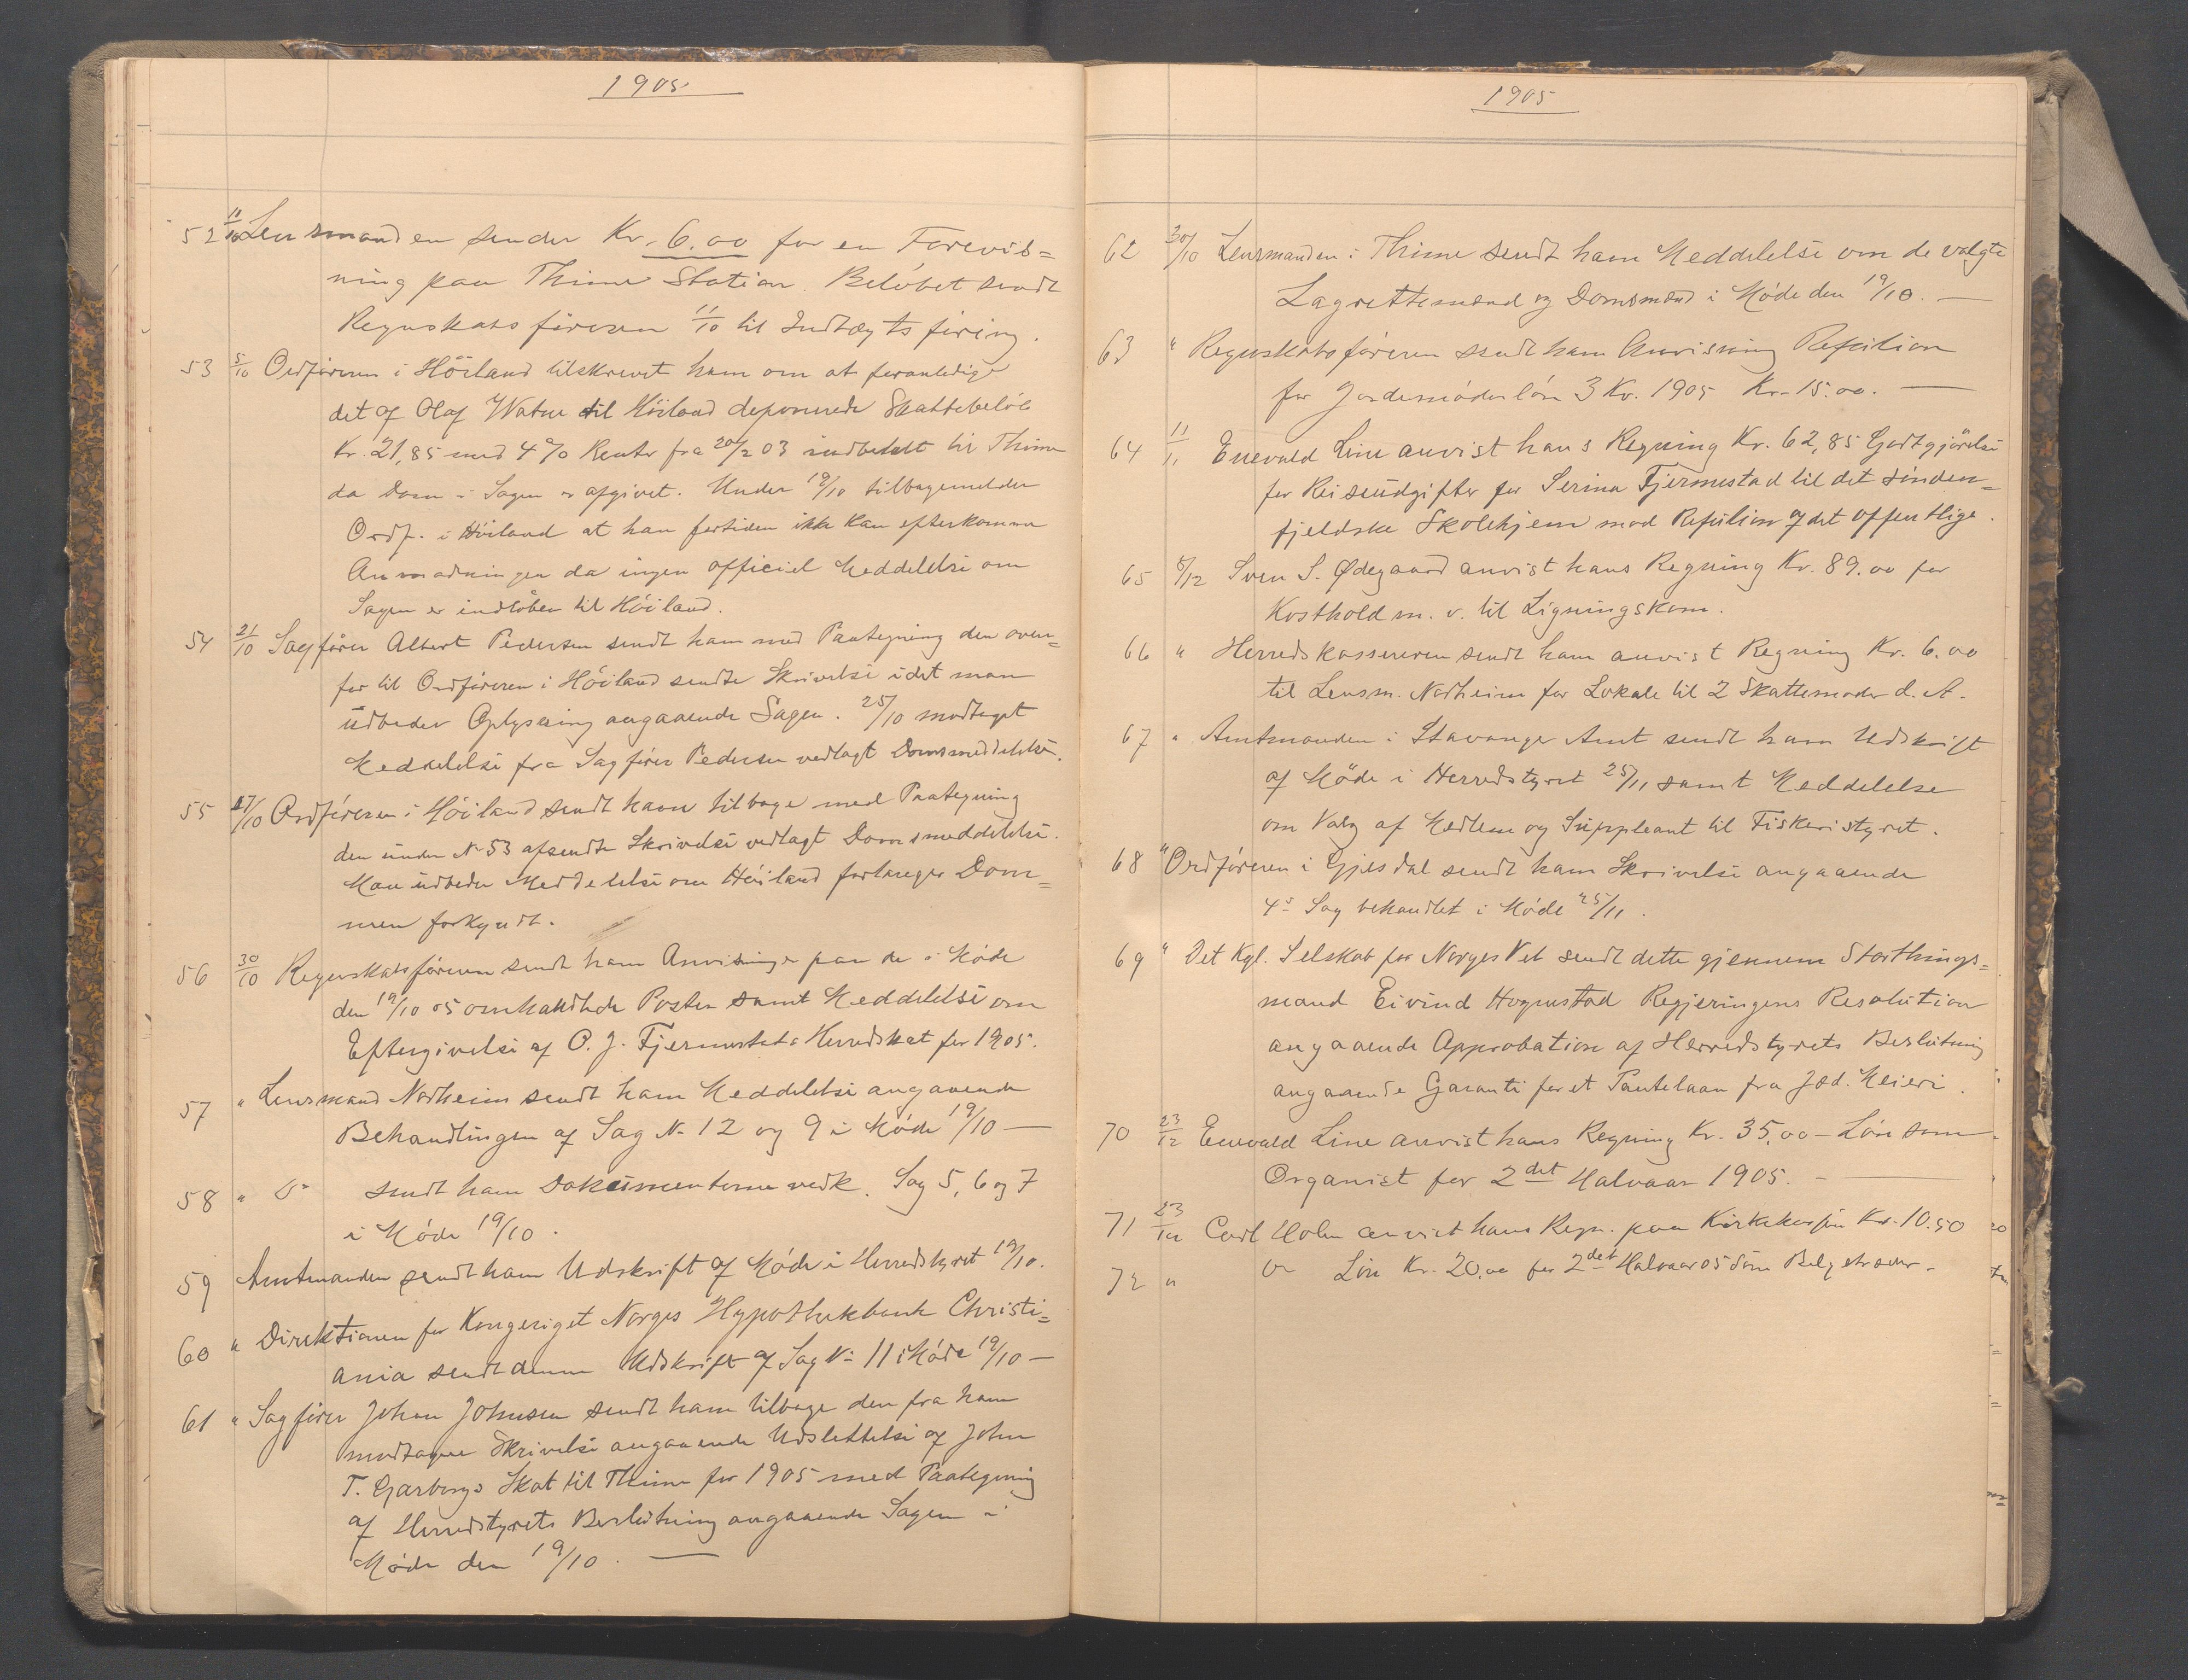 1905
52 11/10 Lensmanden sender Kr. 6,00 for en Forevis=
ning paa Thime Station. Beløbet sendt
Regnskabsføreren 11/10 til Indtægtsføring.
53 5/10 Ordføreren i Höiland tilskrevet ham om at foranledige
det af Olaf Watne til Höiland deponerede Skattebeløb
Kr. 21,85 med 4% Renter fra 20/2 03 indbetalt til Thime
da Dom i Sagen er afgivet. Under 19/10 tilbagemelder
Ordf. i Höiland at han fortiden ikke kan efterkomme
Anmodningen da ingen officiel Meddelelse om
Sagen er indløben til Höiland.
54 21/10 Sagfører Albert Pedersen sendt ham med Paategning den oven=
for til Ordføreren i Höiland sendte Skrivelse idet man
udbeder Oplysning angaaende Sagen. 25/10 modtaget
Meddelelse fra Sagfører Pedersen vedlagt Domsmeddelelse.
55 27/10 Ordføreren i Höiland sendt ham tilbage med Paategning
den under N- 53 afsendte Skrivelse vedlagt Domsmeddelelse.
Man udbeder Meddelelse om Höiland forlanger Dom=
men forkyndt.
56 30/10 Regnskabsføreren sendt ham Anvisninger paa de i Møde
den 19/10 05 omhandlede Poster samt Meddelelse om
Eftergivelse af O. J. Fjermestads Herredskat for 1905.
57 " Lensmand Nærheim sendt ham Meddelelse angaaende
Behandlingen af Sag N- 12 og 9 i Møde 19/10 —
58 " Do sendt ham Dokumenterne vedk. Sag 5, 6 og 7
i Møde 19/10.
59 Amtmanden sendt ham Udskrift af Møde i Herredstyret 19/10.
60 " Direktionen for Kongeriget Norges Hypothekbank Christi=
ania sendt denne Udskrift af Sag N- 11 i Møde 19/10 —
61 " Sagfører Johan Johnsen sendt ham tilbage den fra ham
modtagne Skrivelse angaaende Udslettelse af John
T. Garborgs Skat til Thime for 1905 med Paategning
af Herredstyrets Beslutning angaaende Sagen i
Møde den 19/10. —
1905
62 30/10 Lensmanden i Thime sendt ham Meddelelse om de valgte
Lagrettemænd og Domsmænd i Møde den 19/10. —
63 " Regnskabsføreren sendt ham Anvisning Refusion
for Jordemøderløn 3 Kv. 1905 Kr. 15.00. —
64 11/11 Enevald Line anvist hans Regning Kr. 62,85 Godtgjörelse
for Reiseudgifter for Serina Fjermestad til det sønden=
fjeldske Skolehjem mod Refusion af det offentlige.
65 8/12 Sven S. Ødegaard anvist hans Regning Kr. 89.00 for
Kosthold m. v. til Ligningskom.
66 " Herredskassereren sendt ham anvist Regning Kr. 6.00
til Lensm. Nærheim for Lokale til 2 Skattemøder d. A.
67 " Amtmanden i Stavanger Amt sendt ham Udskrift
af Møde i Herredstyret 25/11 samt Meddelelse
om Valg af Medlem og Suppleant til Fiskeristyret.
68 " Ordføreren i Gjesdal sendt ham Skrivelse angaaende
4de Sag behandlet i Møde 25/11.
69 " Det Kgl. Selskab for Norges Vel sendt dette gjennem Storthings=
mand Eivind Hognestad Regjeringens Resolution
angaaende Approbation af Herredstyrets Beslutning
angaaende Garanti for et Pantelaan fra Jæd. Meieri.
70 23/12 Enevald Line anvist hans Regning Kr. 35,00 – Løn som
Organist for 2det Halvaar 1905. —
71 23/12 Carl Holm anvist hans Regn. paa Kr. 10.50
72 " Do Løn Kr. 20,00 for 2det Halvaar 05 som Belgetræder.